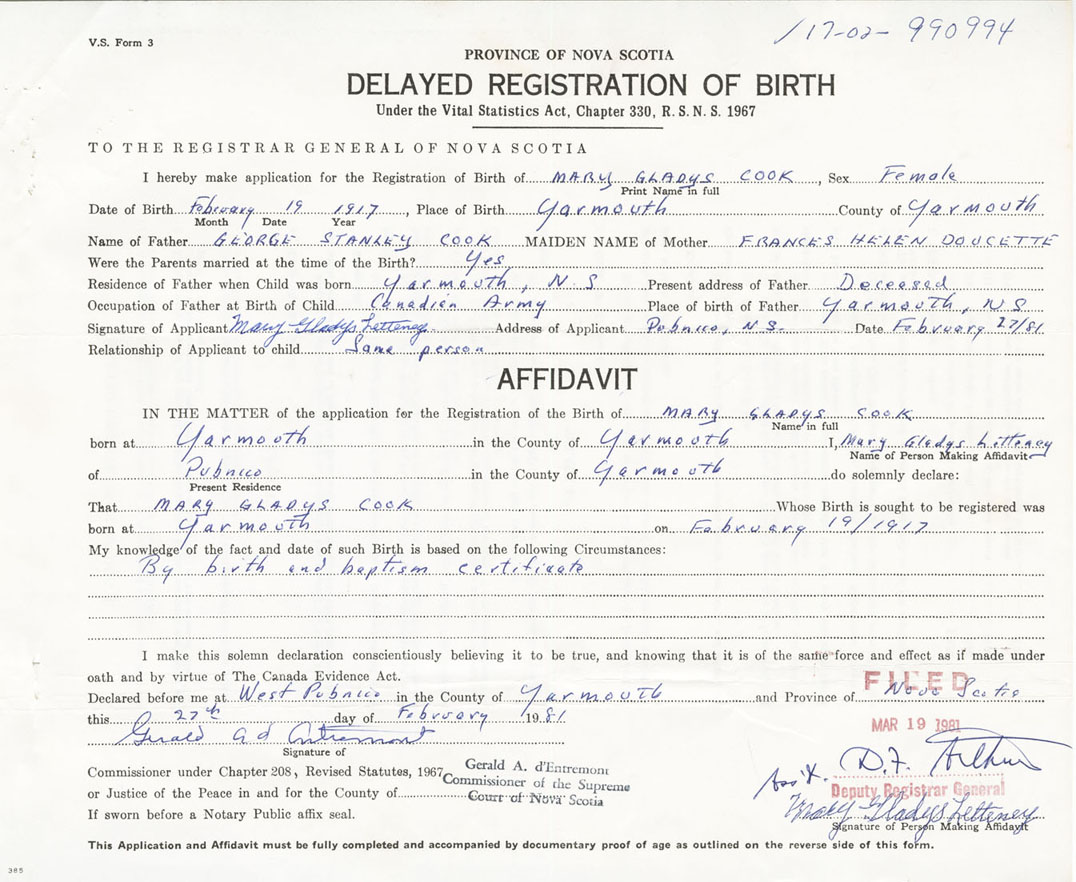 V.S. Form 3
/17-02- 990994
PROVINCE OF NOVA SCOTIA
DELAYED REGISTRATION OF BIRTH
Under the Vital Statistics Act, Chapter 330, R. S. N. S. 1967
TO THE REGISTRAR GENERAL OF NOVA SCOTIA
I hereby make application for the Registration of Birth of MARY GLADYS COOK, Sex Female
Print Name in full
Date of Birth February 19 1917, Place of Birth Yarmouth County of Yarmouth
Month Date Year
Name of Father GEORGE STANLEY COOK MAIDEN NAME of Mother FRANCES HELEN DOUCETTE
Were the Parents married at the time of the Birth? Yes
Residence of Father when Child was born Yarmouth, N S Present address of Father Deceased
Occupation of Father at Birth of Child Canadian Army Place of birth of Father Yarmouth, N S
Signature of Applicant Mary Gladys Letteney Address of Applicant Pubnico, N.S. Date February 27/81
Relationship of Applicant to child Same person
AFFIDAVIT
IN THE MATTER of the application for the Registration of the Birth of MARY GLADYS COOK
Name in full
born at Yarmouth in the County of Yarmouth I, Mary Gladys Letteney
Name of Person Making Affidavit
of Pubnico in the County of Yarmouth do solemnly declare:
Present Residence
That MARY GLADYS COOK Whose Birth is sought to be registered was
born at Yarmouth on February 19/1917
My knowledge of the fact and date of such Birth is based on the following Circumstances:
By birth and baptism certificate
I make this solemn declaration conscientiously believing it to be true, and knowing that it is of the same force and effect as if made under
oath and by virtue of The Canada Evidence Act.
FILED
Declared before me at West Pubnico in the County of Yarmouth and Province of Nova Scotia
this 27th day of February 1981
MAR 19 1981
Gerald A d'Entremont
Signature of
Commissioner under Chapter 208, Revised Statutes, 1967
or Justice of the Peace in and for the County of
Gerald A. d'Entremont
Commissioner of the Supreme
Court of Nova Scotia
If sworn before a Notary Public affix seal.
Ass't. D.F. Arthur
Deputy Registrar General
Mary Gladys Letteney
Signature of Person Making Affidavit
This Application and Affidavit must be fully completed and accompanied by documentary proof of age as outlined on the reverse side of this form.
385